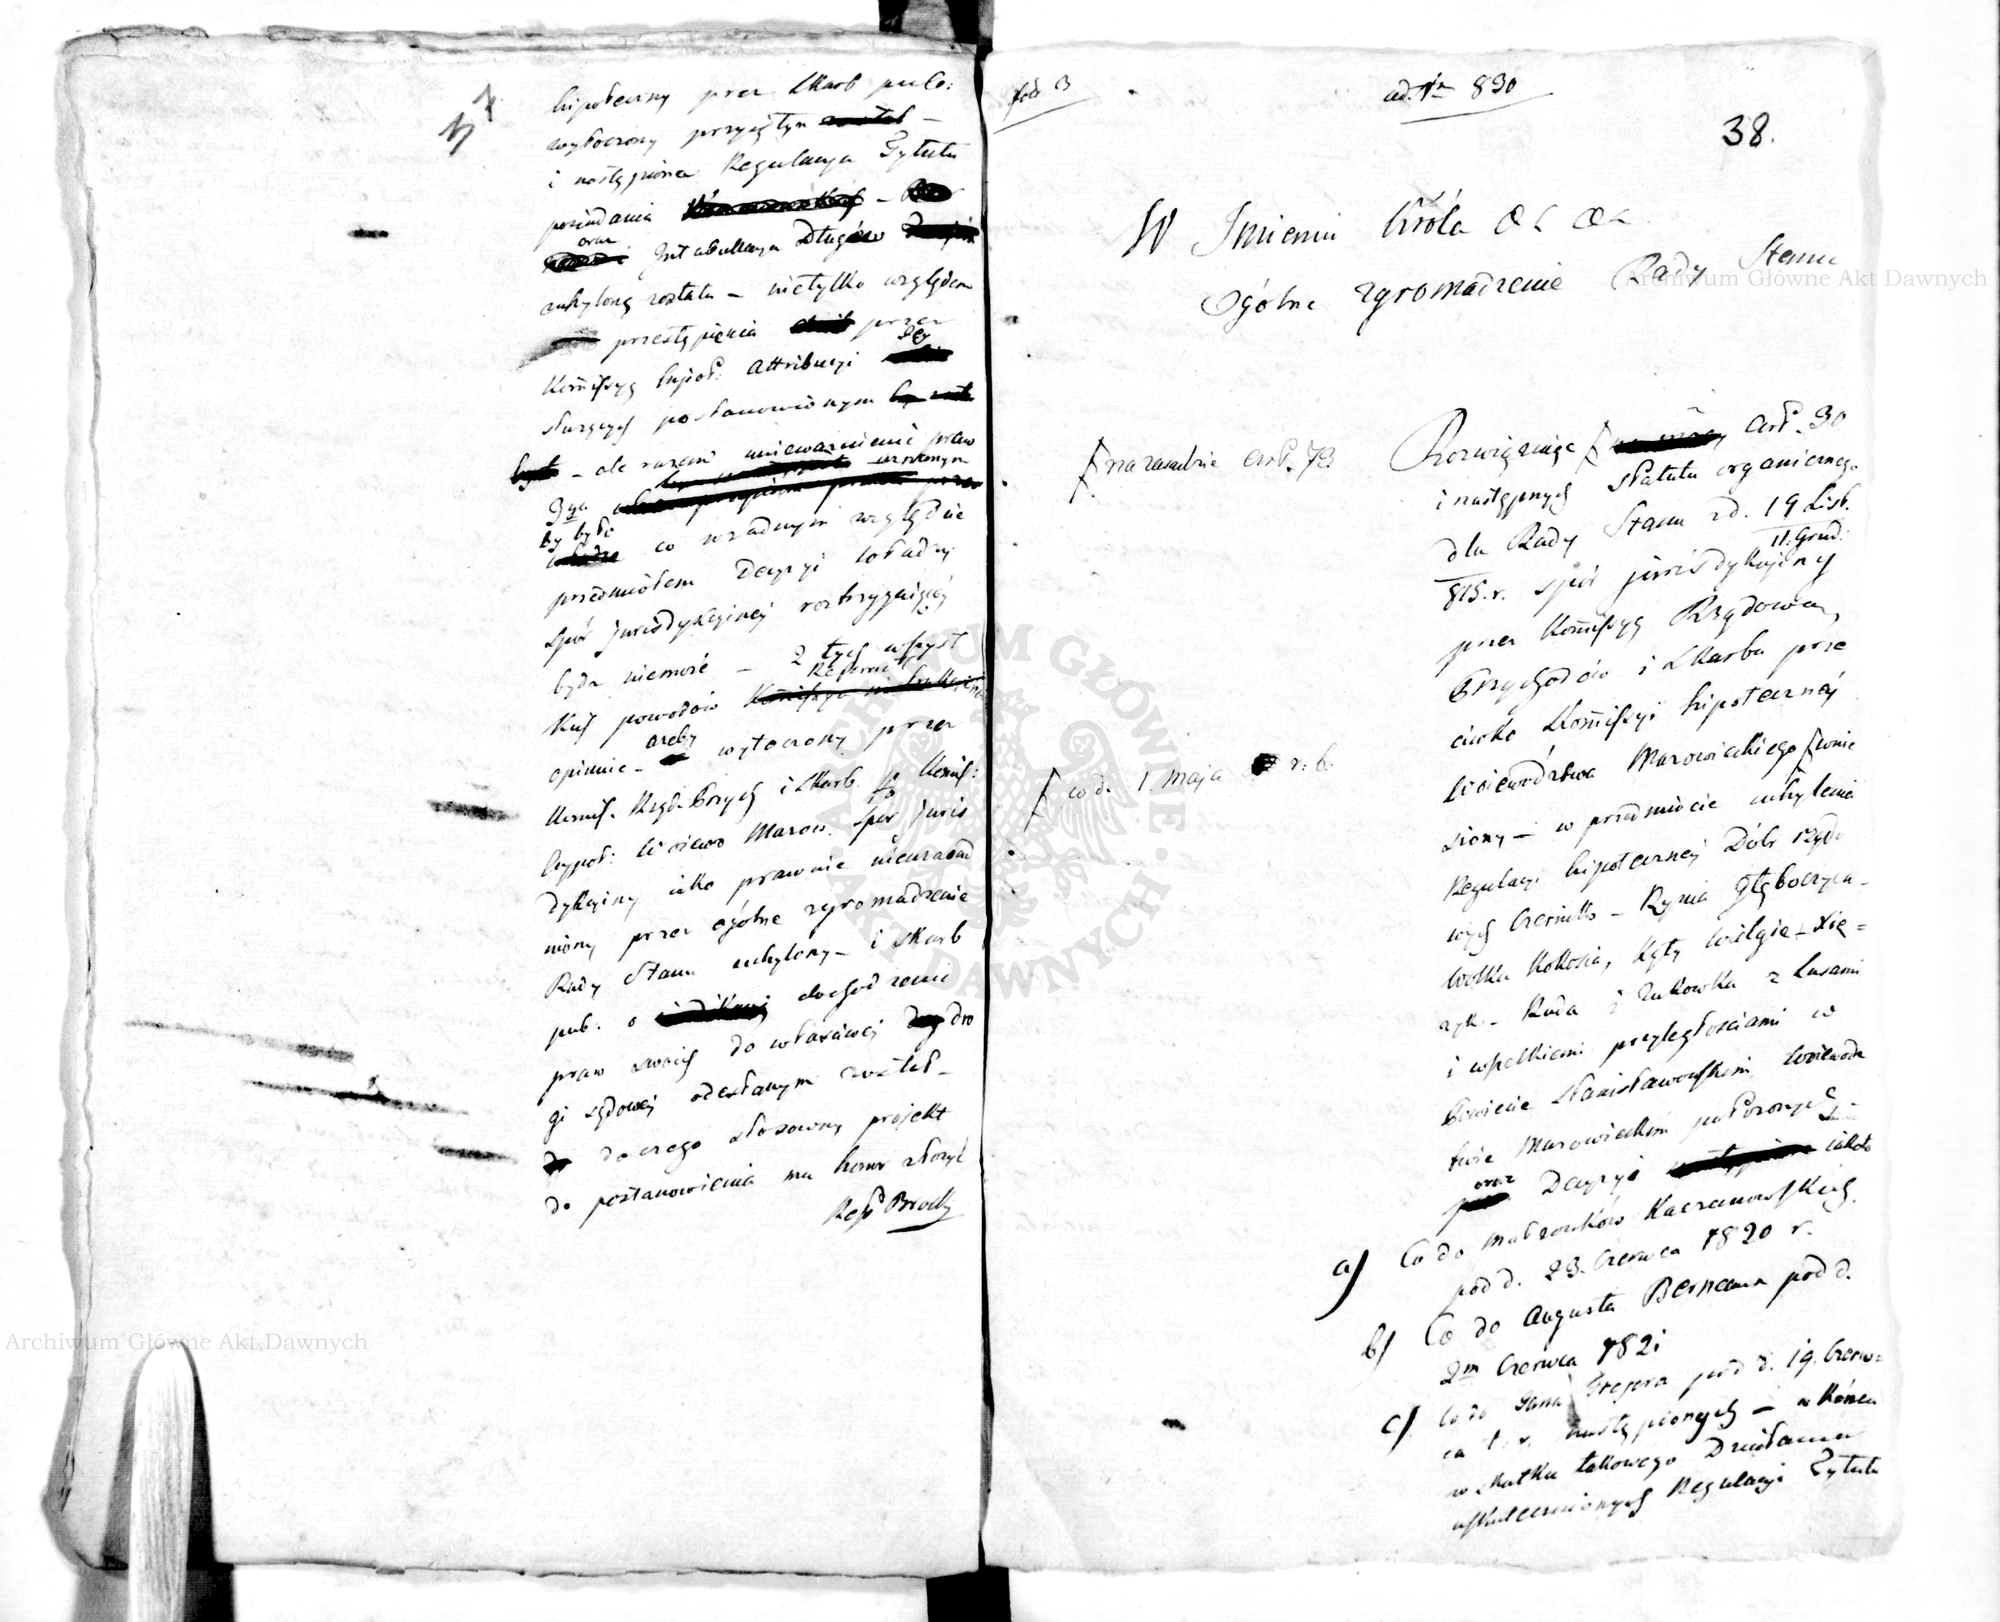 hipoteczny przez Skarb publ:
wytoczony przyjętym został —
i nastąpiona Regulacya Tytułu
posiadania
oraz Intabullacya Długów
uchyloną została — nietylko względem
przestąpienia przez
Kommissyą hypot: Attribucyi Jey
służących postanowionym
— ale razem unieważnienie praw
3go uznanym
by było co w żadnym względzie
przedmiotem Decyzyi władzy
spór Jurisdykcyjney roztrzygaiącey
bydź niemoże — z tych wszyst
kich powodów Referent
opiniie — ażeby wytoczony przez
Kommis. Rząd. Przych i Skarb. Kommis:
hypot: Woiewo Mazow. spór Juris
dykcyjny iako prawnie nieuzasad
niony przez ogólne zgromadzenie
Rady Stanu uchylony — i Skarb
pub. o dochodzenie
praw swoich do właściwej dro
gi sądowej odesłanym został —
do czego stosowny projekt
do postanowienia ma honor złożyć
Ref Brodz
38.
W Imieniu Króla &c &c
Ogólne zgromadzenie Rady Stanu
Rozwiązując na zasadzie Art. 73 Art. 30
i następnych Statutu organicznego
dla Rady Stanu z d. 19 List.
11. Grud:
815. r. spór jurisdykcyiny
przez Kommissyą Rządową
Przychodów i Skarbu prze
ciwko Kommissyi hipotecznej
Woiewództwa Mazowieckiego wnie
w d. 1. maja r. b.
siony — w przedmiocie uchylenia
Regulacyi hipotecznej Dóbr rządo
wych Czernik — Rynia Głęboczyca —
Wolka Kokosia, Kąty Wielgie — Się=
żyk — Ruda i Żukowka z Lasami
i wszelkiemi przyległościami w
Powiecie Stanisławowskim Woiewódz
twie Mazowieckim położonych
oraz Decyzyi iakoto
a) Co do małżonków Kaczanowskich
pod d. 23. Czerwca 1820 r.
b) Co do Augusta Berneaux pod d.
2m Czerwca 1821
c) Co do Jana Trepera pod d. 19. Czerw=
ca t. r. nastąpionych — w końcu
w skutku takowego Działania
uskutecznionych Regulacyi Tytułu